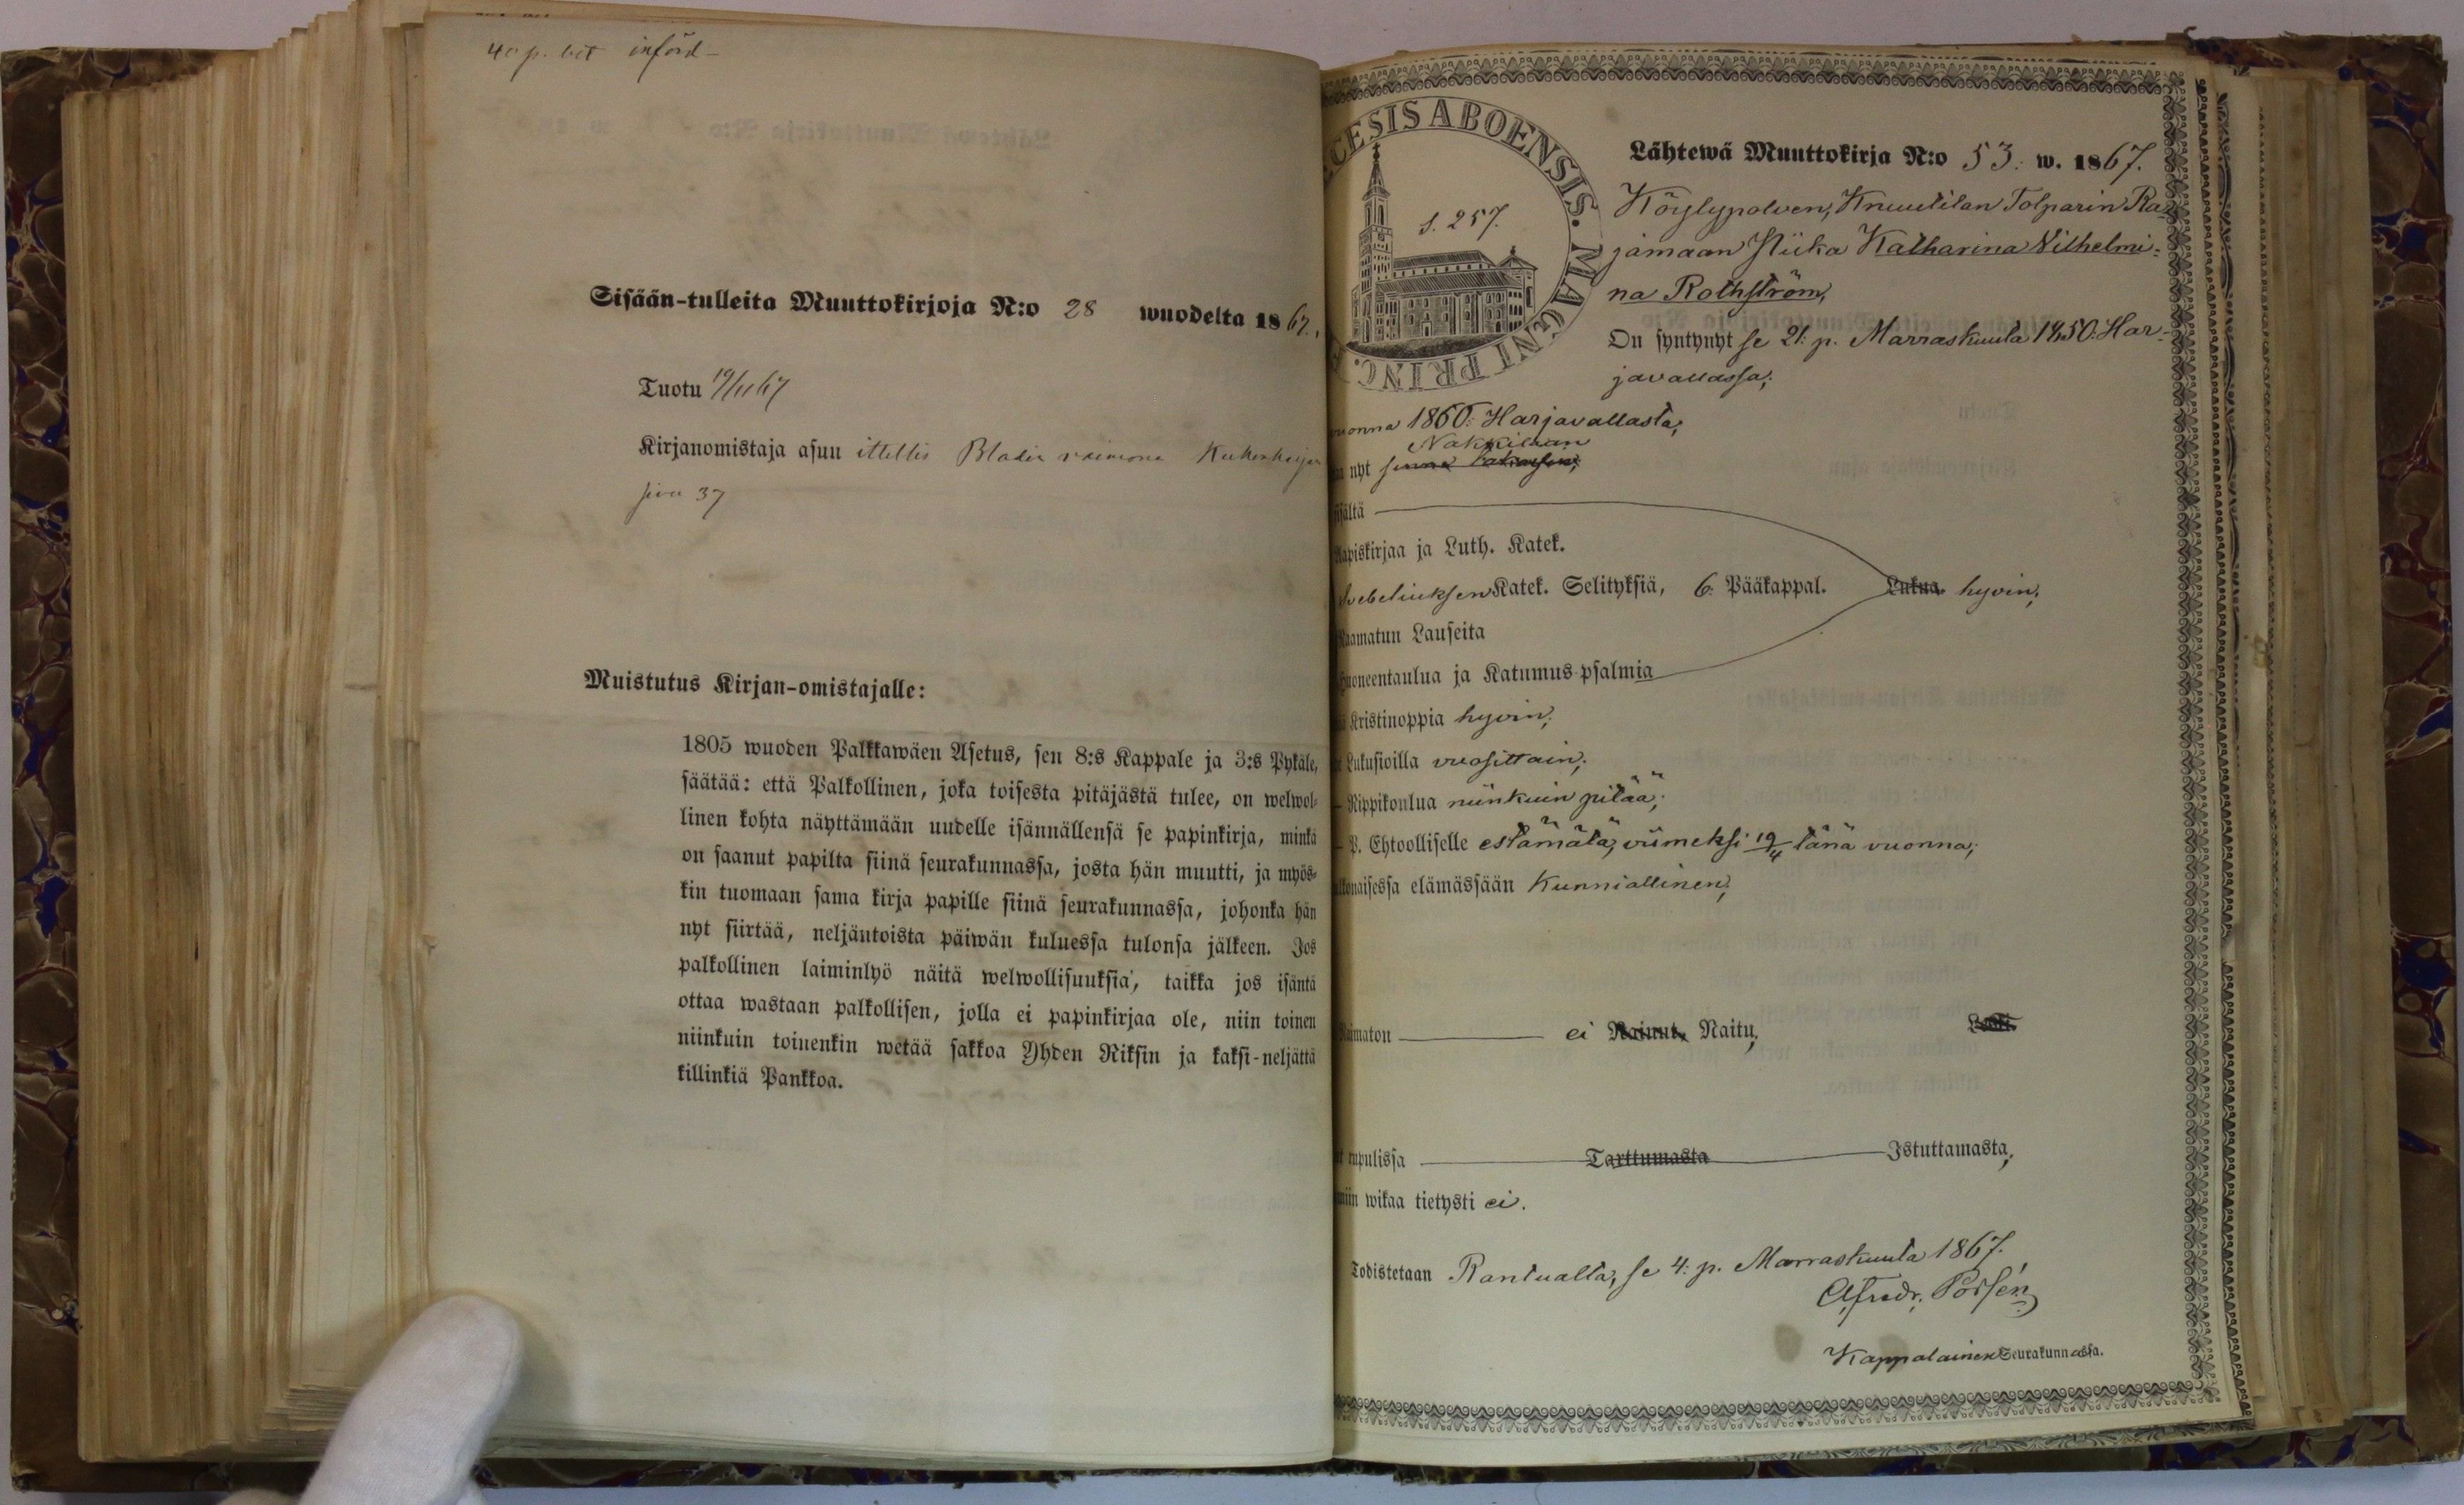 40 p. bet införd –
Sisään-tulleita Muuttokirjoja N:o 28 wuodelta 1867.
Tuotu 19/11 67
Kirjanomistaja asuu ittellis vaimona
sivu 37
Muistutus Kirjan-omistajalle:
1805 wuoden Palkkawäen Asetus, sen 8:s Kappale ja 3:s Pykäle,
säätää: että Palkollinen, joka toisesta pitäjästä tulee, on welwol-
linen kohta näyttämään uudelle isännällensä se papinkirja, minkä
on saanut papilta siinä seurakunnassa, josta hän muutti, ja myös-
kin tuomaan sama kirja papille siinä seurakunnassa, johonka hän
nyt siirtää, neljäntoista päiwän kuluessa tulonsa jälkeen. Jos
palkollinen laiminlyö näitä welwollisuuksia, taikka jos isäntä
ottaa wastaan palkollisen, jolla ei papinkirjaa ole, niin toinen
niinkuin toinenkin wetää sakkoa Yhden Riksin ja kaksi-neljättä
killinkiä Pankkoa.
CESIS ABOENSIS. MAGNI PRINC.
s. 257.
Lähtewä Muuttokirja N:o 53. w. 1867.
Köylypolven, Knuutilan Tolparin Ra-
jamaan Piika Katharina Vilhelmi-
na Rothström,
On syntynyt se 21. p. Marraskuuta 1850. Har-
javallassa;
uonna 1860. Harjavallasta;
Nakkilaan
nyt
ältä
apiskirjaa ja Luth. Katek.
vebeliuksen Katek. Selityksiä, 6. Pääkappal. Lukua hyvin;
aamatun Lauseita
uoneentaulua ja Katumus-psalmia
Kristinoppia hyvin;
Lukusioilla vuosittain;
Rippikoulua niinkuin pitää;
P. Ehtoolliselle estämätä, viimeksi 19/4 tänä vuonna;
lkonaisessa elämässään kunniallinen;
aimaton ei Nainut, Naitu,
rupulissa Tarttumasta Istuttamasta,
niin wikaa tietysti ei.
Todistetaan Rantualta, se 4. p. Marraskuuta 1867.
Afredr. Polsén
Kappalainen Seurakunnassa.